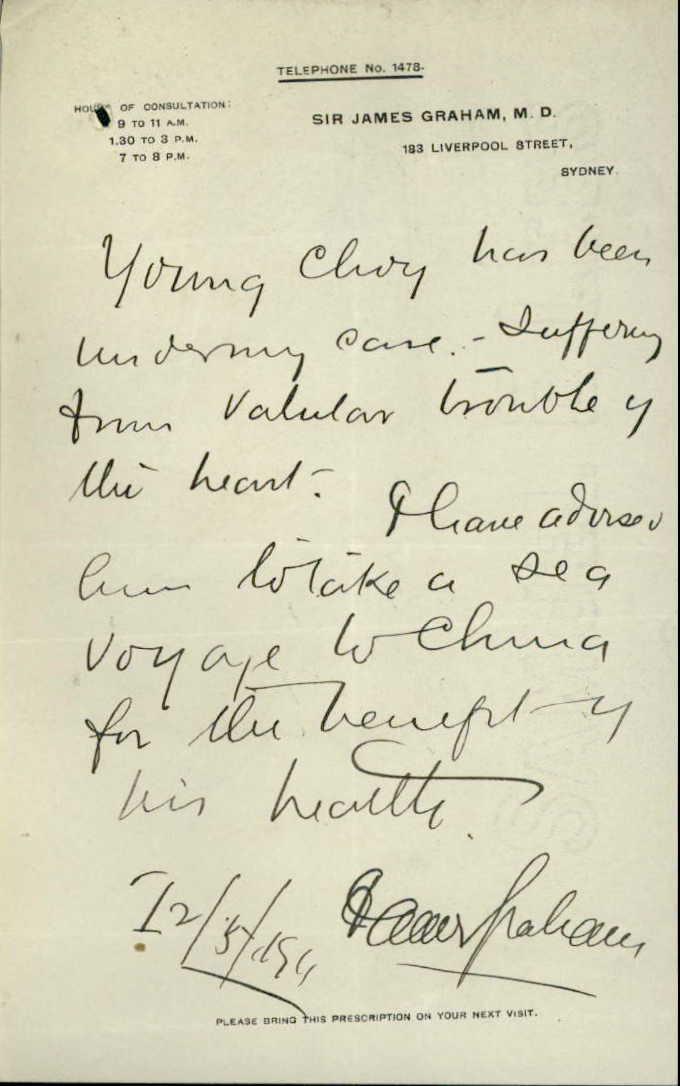 TELEPHONE No. 1478.
HOURS OF CONSULTATION:
9 TO 11 A.M.
1.30 TO 3 P.M.
7 TO 8 P.M.
SIR JAMES GRAHAM, M. D.
183 LIVERPOOL STREET,
SYDNEY.
Young Choy has been
under my care. - Suffering
from Valvular trouble of
the heart. -
I have advised
him to take a sea
voyage to China
for the benefit of
his health.
12/5/
James Graham
PLEASE BRING THIS PRESCRIPTION ON YOUR NEXT VISIT.